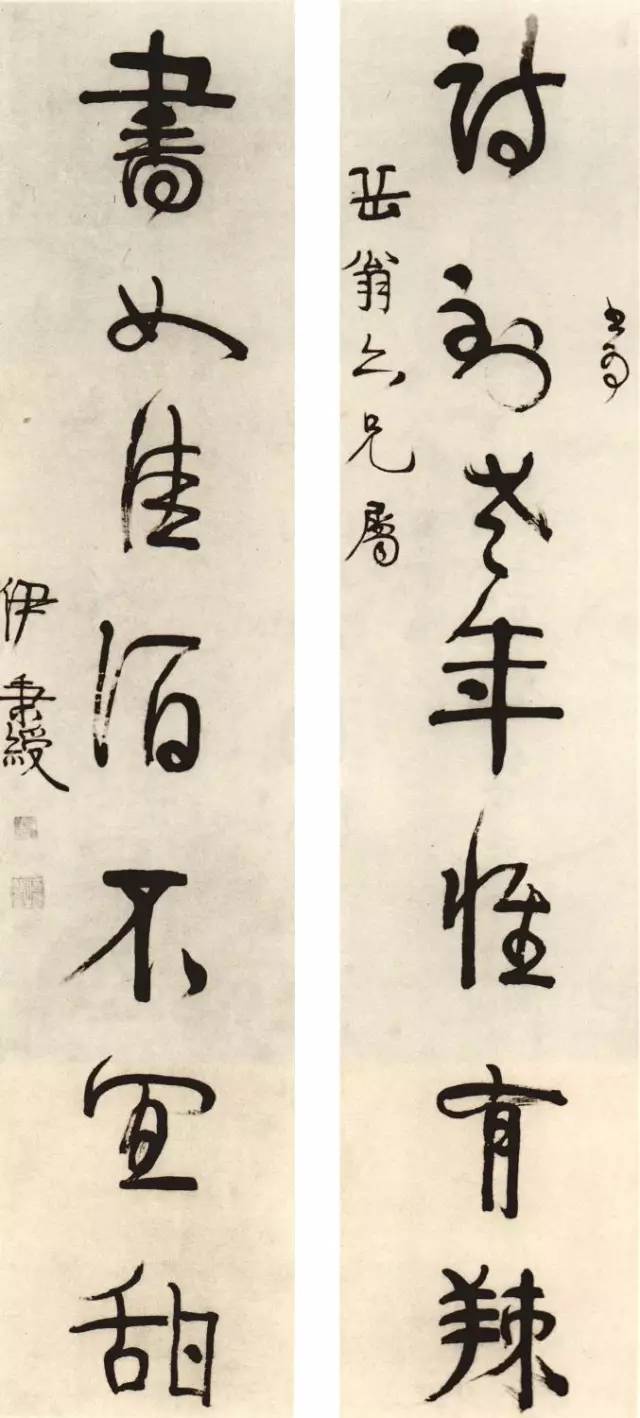 詩到老年惟有辣
岳翁六兄屬
書如佳酒不宜甜
伊秉綬